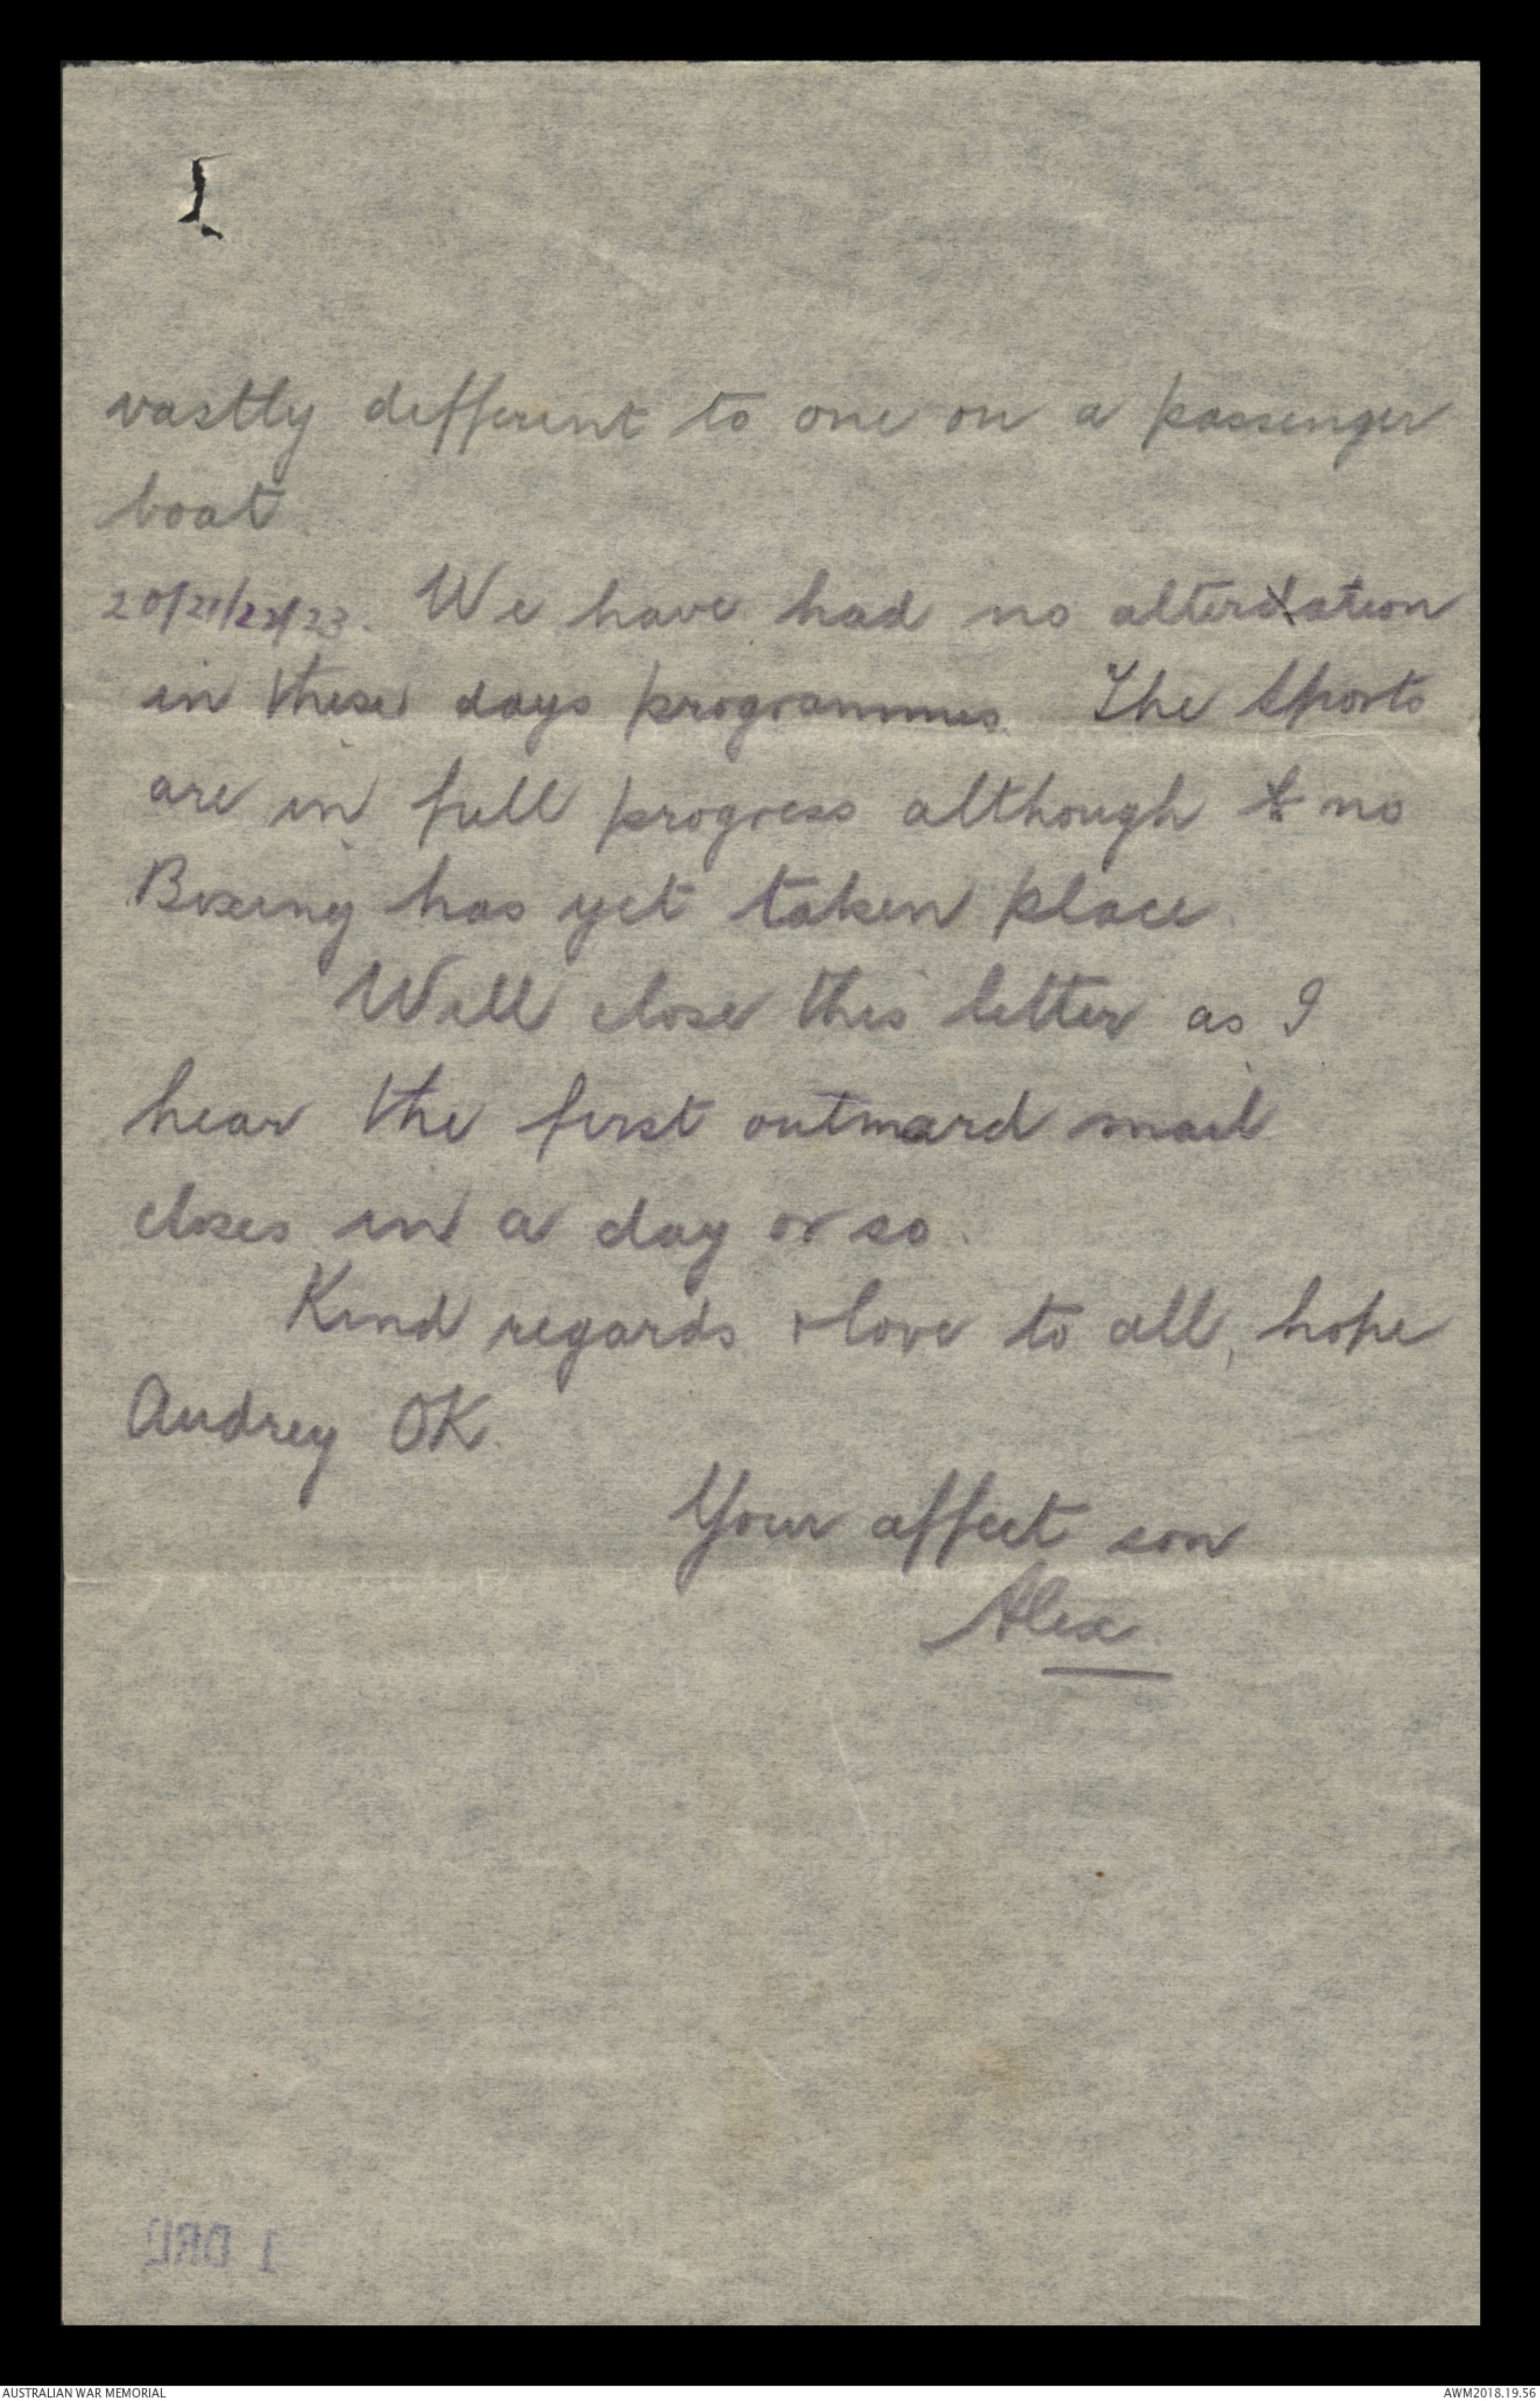 vastly different to one on a passenger
boat.
20/21/22/23. We have had no alteration
in these days programmes. The Sports
are in full progress although no
Boxing has yet taken place.
Will close this letter as I
hear the first outward mail
closes in a day or so.
Kind regards & love to all, hope
Audrey OK.
Your affect son
Alex
1 DRL
AUSTRALIAN WAR MEMORIAL
AWM2018.19.56